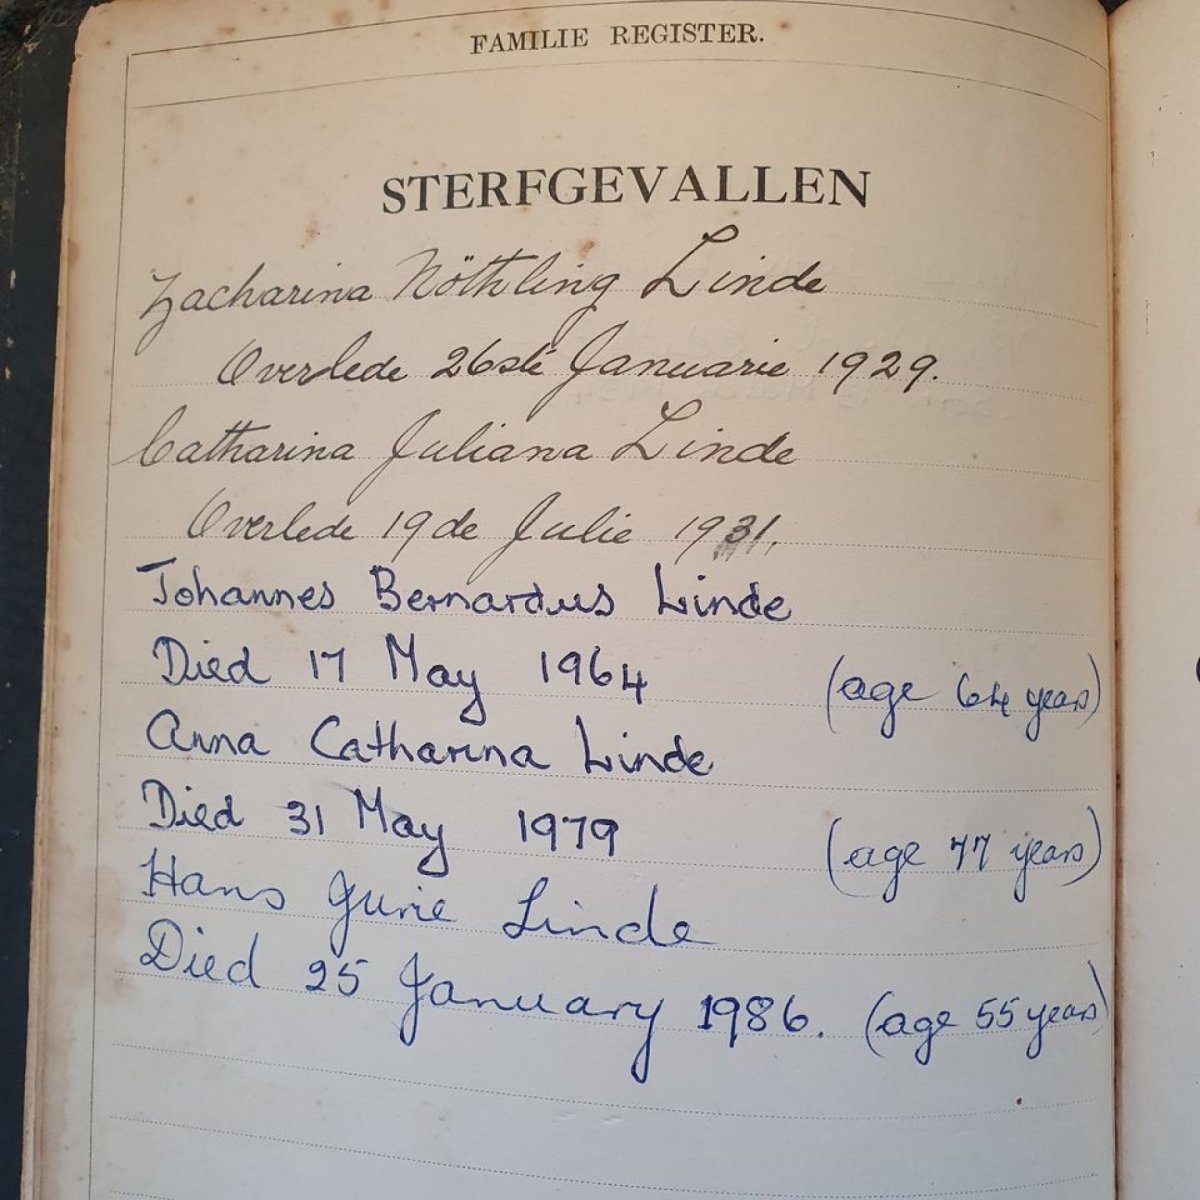 FAMILIE REGISTER.
STERFGEVALLEN
Zacharina Nöthling Linde
Overlede 26ste Januarie 1929.
Catharina Juliana Linde
Overlede 19de Julie 1931.
Johannes Bernardus Linde
Died 17 May 1964 (age 64 years)
Anna Catharina Linde
Died 31 May 1979 (age 77 years)
Hans Jurie Linde
Died 25 January 1986. (age 55 years)